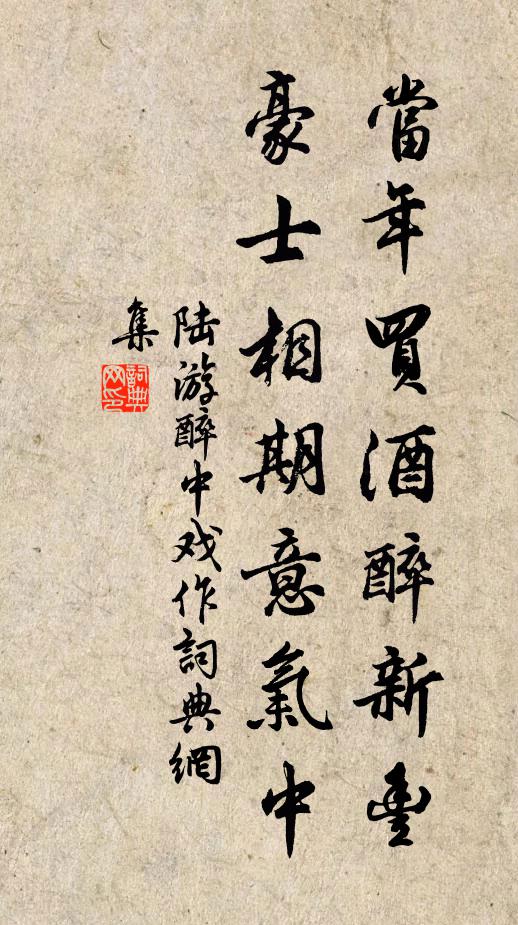 當年買酒醉新豐
豪士相期意氣中
陆游醉中戏作詞典網
集
詞典
网印